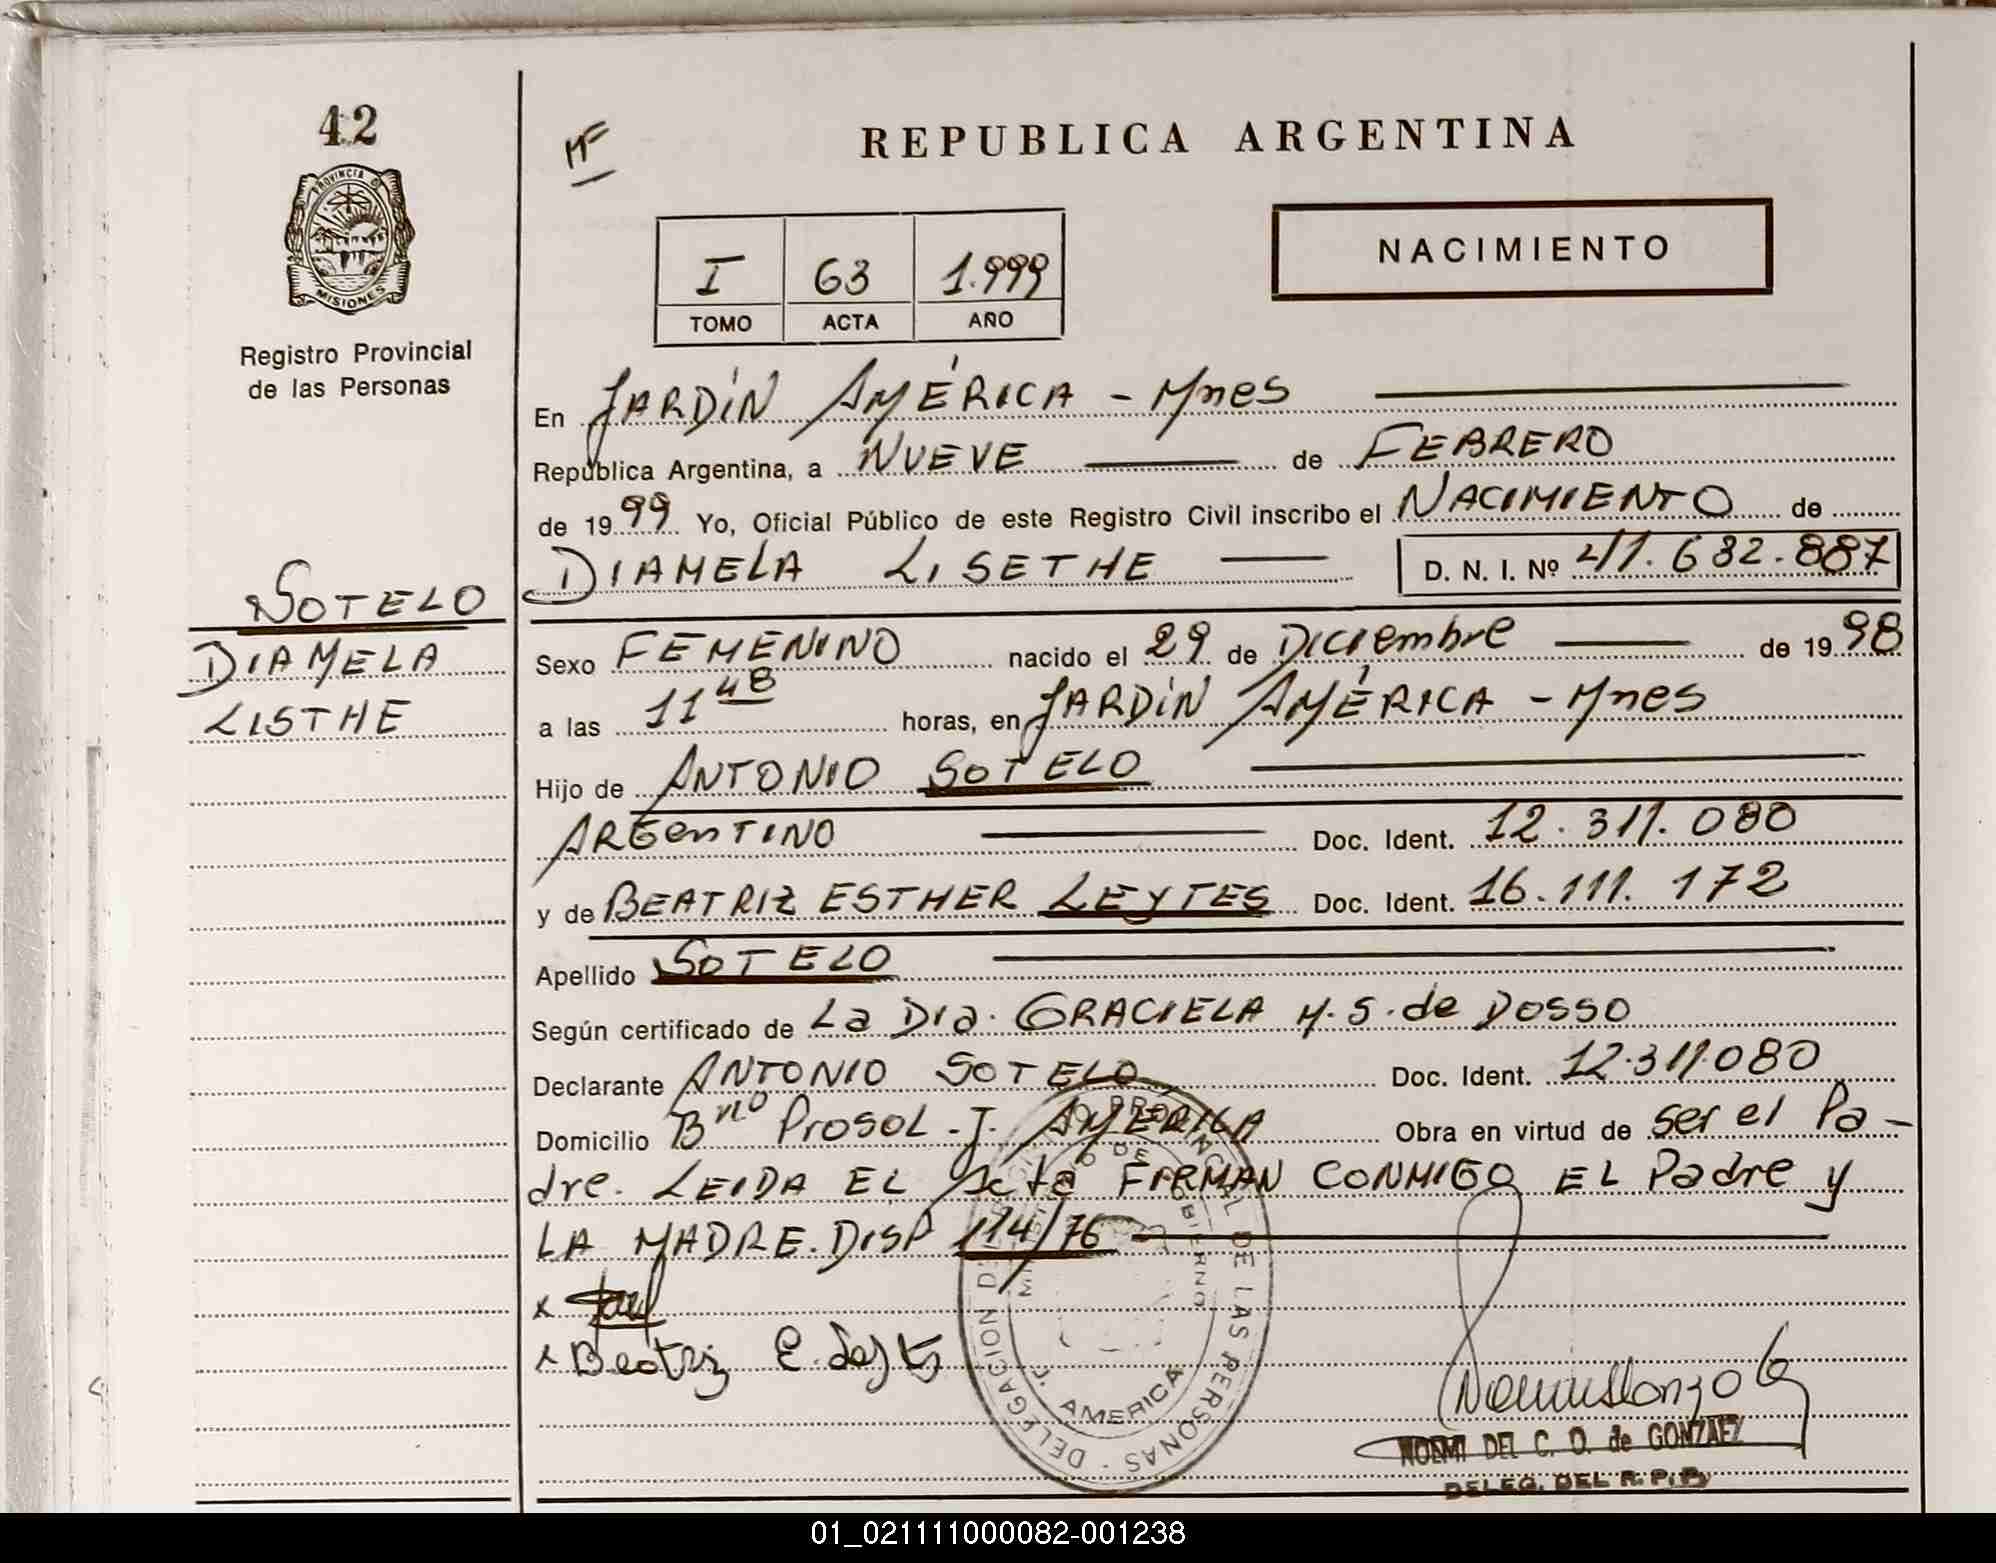 42
PROVINCIA DE
MISIONES
Registro Provincial
de las Personas
SOTELO
DIAMELA
LISTHE
MF
REPUBLICA ARGENTINA
I 63 1.999
TOMO ACTA AÑO
NACIMIENTO
En JARDÍN AMÉRICA - Mnes
República Argentina, a NUEVE de FEBRERO
de 1999 Yo, Oficial Público de este Registro Civil inscribo el NACIMIENTO de
DIAMELA LISETHE D. N. I. Nº 41.682.887
Sexo FEMENINO nacido el 29 de Diciembre de 1998
a las 11 48 horas, en JARDÍN AMÉRICA - Mnes
Hijo de ANTONIO SOTELO
ARGENTINO Doc. Ident. 12.311.080
y de BEATRIZ ESTHER LEYTES Doc. Ident. 16.111.172
Apellido SOTELO
Según certificado de La Dra. GRACIELA M.S. de DOSSO
Declarante ANTONIO SOTELO Doc. Ident. 12.311.080
Domicilio Bno Prosol - J. AMÉRICA Obra en virtud de ser el Pa-
dre. LEIDA EL Acta FIRMAN CONMIGO EL Padre y
LA MADRE. DISP 114/76
x
x Beatriz E. Leytes
DELEGACION DE LAS PERSONAS
J. AMERICA
NOEMI DEL C. O. de GONZALEZ
DELEG. DEL R. P. P.
01_021111000082-001238